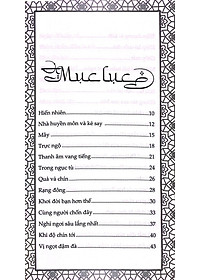 Mục lục
Hiển nhiên 10
Nhà huyền môn và kẻ say 12
Mây 15
Trực ngộ 18
Thanh âm vang tiếng 21
Trong ngục tù 24
Quả và chín 26
Rạng đông 28
Khơi đời bạn hơn thế 30
Cùng người chốn đây 33
Nghỉ ngơi sâu lắng nhất 37
Khi độ chín tới 40
Vị ngọt đậm đà 43